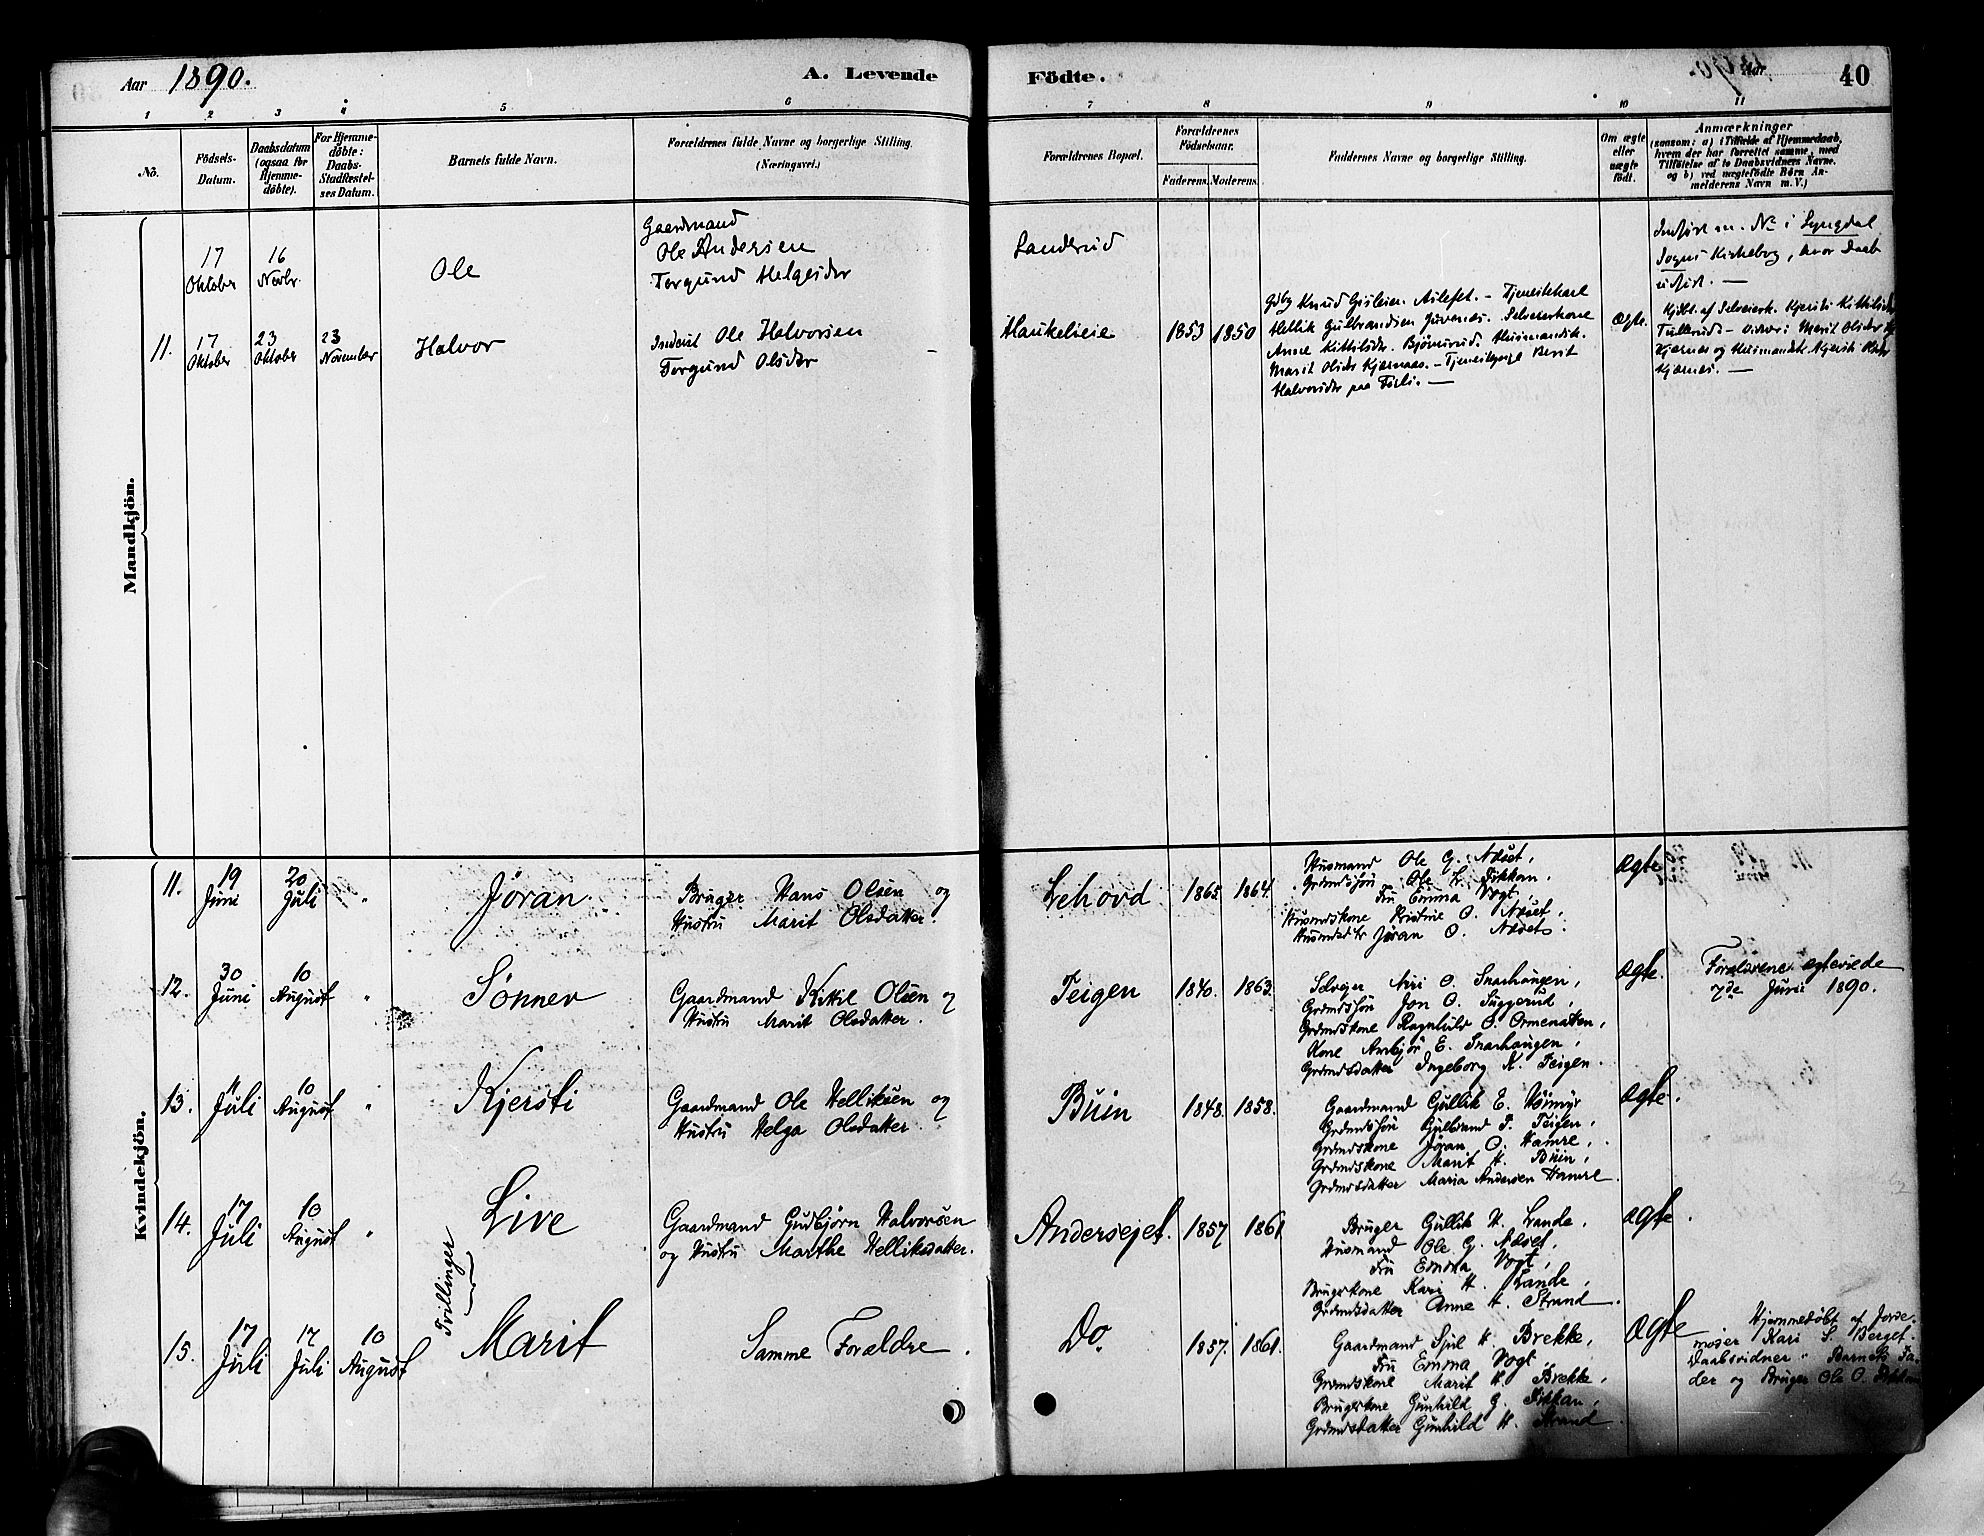 Aar 1890.
A. Levende Födte.
40
1 2 3 4 5 6 7 8 9 10 11
No.
Födsels-Datum.
Daabsdatum (ogsaa for Hjemme-döbte).
For Hjemme-döbte: Daabs-Stadfæstel-ses Datum.
Barnets fulde Navn.
Forældrenes fulde Navne og borgerlige Stilling. (Næringsvei.)
Forældrenes Bopæl.
Forældrenes Födselsaar.
Faderens. Moderens.
Faddernes Navne og borgerlige Stilling.
Om ægte eller uægte födt.
Anmærkninger
(saasom: a) i Tilfælde af Hjemmedaab,
hvem der har forrettet samme, med
Tilföielse af to Daabsvidners Navne,
og b) ved uægtefödte Börn An-
melderens Navn m. V.)
Mandkjön.
17 Oktober
16 Novbr.
Ole
Gaardmand
Ole Andersen
Torgund Helgesdtr
Landerud
Indført u. No i Lyngdal
Sogns Kirkebog, hvor Daab
udført. —
11.
17 Oktober
23 Oktober
23 November
Halvor
Inderst Ole Halvorsen
Torgund Olsdtr
Haukelieie
1853 1850
Gdbg Knud Gisleson Ailefet. – Tjenestekarl
Hellik Gulbrandsen Juvenes. Selveierkone
Anne Kittilsdtr. Bjørnerud. Husmandsk.
Marit Olsdtr Kjærnaas. – Tjenestepige Berit
Halvorsdtr paa Førli. —
Ægte.
Hjdbt. af Selveierk. Kjersti Kittilsdtr
Tullerud – Vidner: Marit Olsdtr
Kjærnes og Husmandsk. Kjersti
Kjærnes. —
Kvindekjön.
11.
19 Juni
20 Juli
"
Jöran
Bruger Hans Olsen og
Hustru Marit Olsdatter.
Lehovd
1865. 1864.
Husmand Ole G. Næset,
Grdmdssøn Ole L. Fikkan,
Fru Emma Vogt,
Husmdskone Kristine O. Næset,
Husmdsdtr Jöran O. Næset.
Ægte
12.
30 Juni
10 August
"
Sönnev
Gaardmand Kittil Olsen og
Hustru Marit Olsdatter.
Teigen
1840. 1863.
Selveger Ari O. Snarhaugen,
Grdmdssøn Jon O. Tuggerud,
Grdmdskone Ragnhild O. Ormenatten,
Kone Anbjør E. Snarhaugen,
Grdmdsdatter Ingeborg K. Teigen.
Ægte.
Forældrene ægteviede
7de Juni 1890.
13.
11 Juli
10 August
"
Kjersti
Gaardmand Ole Helliksen og
Hustru Helga Olsdatter.
Buin
1848. 1858.
Gaardmand Gullik E. Hörmyr
Grdmdssøn Gulbrand T. Teigen,
Grdmdskone Jöran O. Hamre,
Grdmdskone Marit H. Buin,
Grdmdsdatter Maria Andersen Hamre.
Ægte.
14.
17 Juli
10 August
"
Live
Gaardmand Gudbjörn Halvorsen
og Hustru Marthe Helliksdatter.
Andersejet.
1857 1861
Bruger Gullik H. Lande,
Husmand Ole G. Næset,
Fru Emma Vogt,
Brugerkone Kari H. Lande,
Grdmdsdatter Anne H. Strand.
Ægte.
Tvillinger
15.
17 Juli
17 Juli
10 August
Marit
Samme Forældre.
Do.
1857. 1861.
Gaardmand Sjul H. Brekke,
Fru Emma Vogt,
Grdmdskone Marit H. Brekke,
Brugerkone Gunhild G. Fikkan,
Grdmdsdatter Gunhild H. Strand.
Ægte
Hjemmedöbt af Jorde-
moder Kari S. Berget.
Daabsvidner: Barnets Fa-
der og Bruger Ole O.